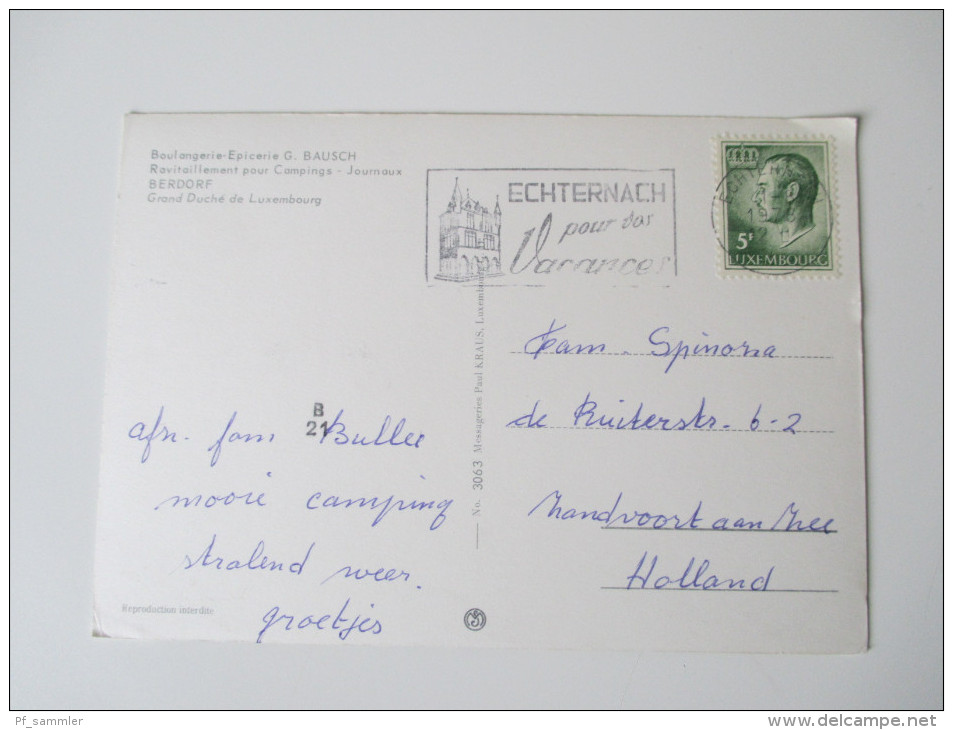 Boulangerie-Epicerie G. BAUSCH
Ravitaillement pour Campings - Journaux
BERDORF
Grand Duché de Luxembourg
ECHTERNACH
pour vos
Vacances
ECHTERN
5F
LUXEMBOURG
Fam. Spinoza
de Ruiterstr. 6-2
Zandvoort aan Zee
Holland
B
21
afz. fam Bullee
mooie camping
stralend weer.
groetjes
No. 3063 Messageries Paul KRAUS, Luxembourg
Reproduction interdite
Pf_sammler
www.delcampe.net